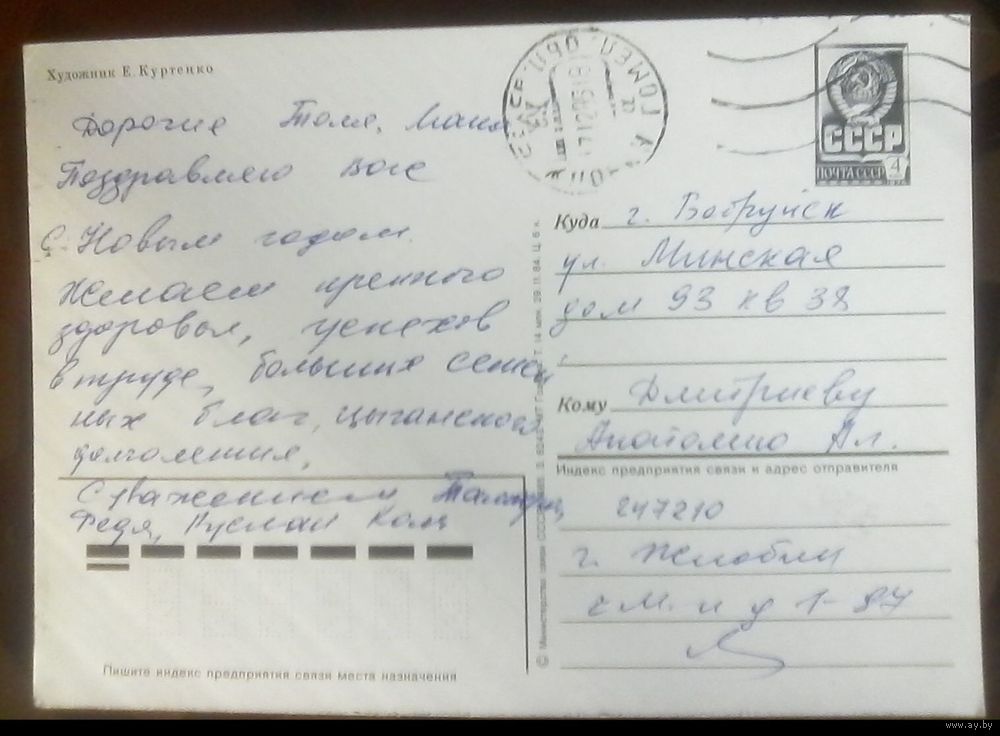 Художник Е. Куртенко
Дорогие Толя, Маша
Поздравляю Вас
С Новым годом.
Желаем крепкого
здоровья, успехов
в труде, больших семей
ных благ, цыганского
долголетия,
С уважением
Федя, Руслан Коля
Пишите индекс предприятия связи места назначения
СССР
ПОЧТА СССР
4
Куда г. Бобруйск
ул. Минская
дом 93 кв 38
Кому Дмитриеву
Анатолию Ал.
Индекс предприятия связи и адрес отправителя
247210
г. Жлобин
1-87
© Министерство связи СССР
www.ay.by